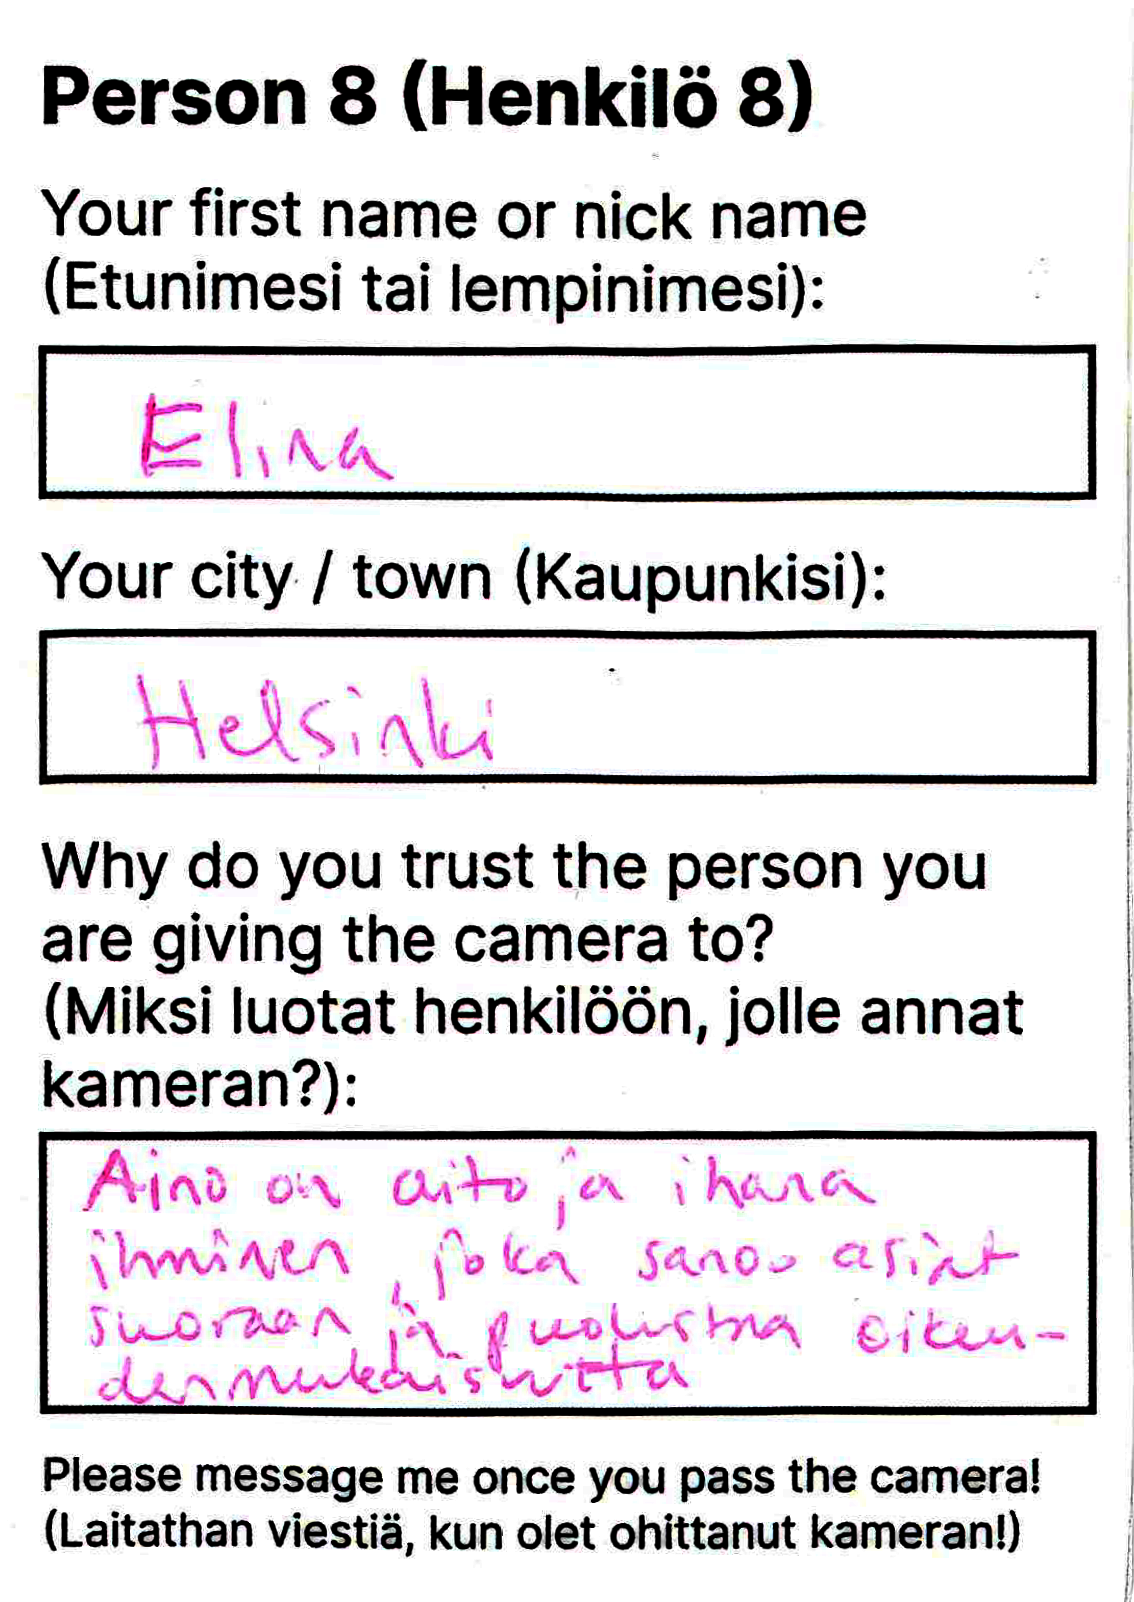 Person 8 (Henkilö 8)
Your first name or nick name
(Etunimesi tai lempinimesi):
Elina
Your city / town (Kaupunkisi):
Helsinki
Why do you trust the person you
are giving the camera to?
(Miksi luotat henkilöön, jolle annat
kameran?):
Aino on aito ja ihana
ihminen, joka sanoo asiat
suoraan ja puolustaa oikeu-
denmukaisuutta
Please message me once you pass the camera!
(Laitathan viestiä, kun olet ohittanut kameran!)